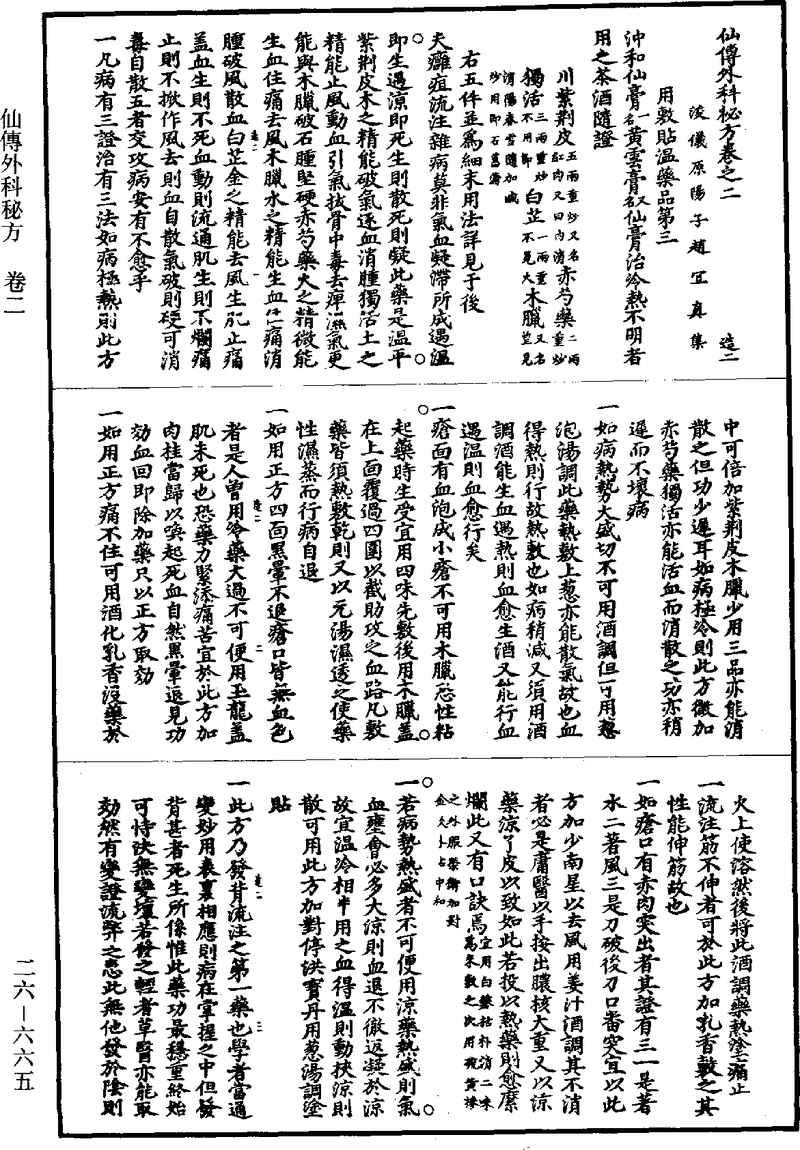 仙傳外科秘方卷之二　造二
浚儀原陽子趙宜真集
用敷貼温藥品第三
沖和仙膏名一黄雲膏名又仙膏治冷熱不明者
用之茶酒隨證
川紫荆皮五兩重炒又名紅肉又曰内消赤芍藥二兩重炒
獨活三兩重炒不用節白芷一兩重不見火木臘又名望見
消陽春雪隨加減炒用即石菖蒲
右五件並爲細末用法詳見于後
夫癰疽流注雜病莫非氣血凝滯所成遇温
即生遇涼即死生則散死則凝此藥是温平
紫荆皮木之精能破氣逐血消腫獨活土之
精能止風動血引氣拔骨中毒去痺濕氣更
能與木臘破石腫堅硬赤芍藥火之精微能
生血住痛去風木臘水之精能生血住痛消
腫破風散血白芷金之精能去風生肌止痛
蓋血生則不死血動則流通肌生則不爛痛
止則不掀作風去則血自散氣破則硬可消
毒自散五者交攻病安有不愈乎
一凡病有三證治有三法如病極熱則此方
中可倍加紫荆皮木臘少用三品亦能消
散之但功少遲耳如病極冷則此方微加
赤芍藥獨活亦能活血而消散之功亦稍
遲而不壞病
一如病熱勢大盛切不可用酒調但可用葱
泡湯調此藥熱敷上葱亦能散氣故也血
得熱則行故熱敷也如病稍減又須用酒
調酒能生血遇熱則血愈生酒又能行血
遇温則血愈行矣
一瘡面有血泡成小瘡不可用木臘恐性粘
起藥時生受宜用四味先敷後用木臘蓋
在上面覆過四圍以截助攻之血路凡敷
藥皆須熱敷乾則又以元湯濕透之使藥
性濕蒸而行病自退
一如用正方四面黑暈不退瘡口皆無血色
者是人曽用冷藥大過不可便用玉龍蓋
肌未死也恐藥力緊添痛苦宜於此方加
肉桂當歸以喚起死血自然黑暈退見功
効血回即除加藥只以正方取効
一如用正方痛不住可用酒化乳香没藥於
火上使溶然後將此酒調藥熱塗痛止
一流注筋不伸者可於此方加乳香敷之其
性能伸筋故也
一如瘡口有赤肉突出者其證有三一是著
水二著風三是刀破後刀口番突宜以此
方加少南星以去風用姜汁酒調其不消
者必是庸醫以手按出膿核大重又以涼
藥涼了皮以致如此若投以熱藥則愈糜
爛此又有口訣焉宜用白藥枯礬消二味爲末敷之次用硫黄摻
之外服榮衛加對金久卜占中和
一若病勢熱盛者不可便用涼藥熱盛則氣
血壅會必多大涼則血退不徹返凝於涼
故宜温冷相半用之血得温則動挾涼則
散可用此方加對停洪寶丹用葱湯調塗
貼
一此方乃發背流注之第一藥也學者當通
變妙用表裏相應則病在掌握之中但發
背甚者死生所係惟此藥功最穩重終始
可恃決無變壞若發之輕者草醫亦能取
効然有變證流弊之患此無他發於陰則
仙傳外科秘方　卷二
二六—六六五